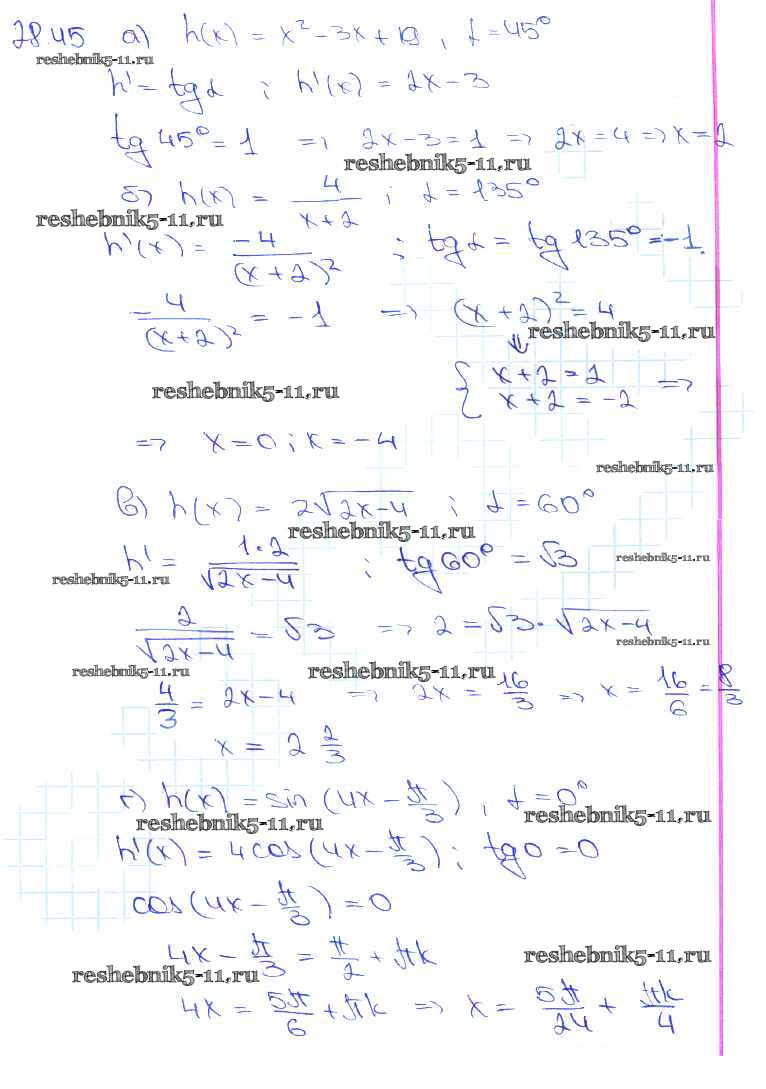 28.45 а) h(x) = x² - 3x + 19, α = 45°
reshebnik5-11.ru
h' = tg α ; h'(x) = 2x - 3
tg 45° = 1 => 2x - 3 = 1 => 2x = 4 => x = 2
reshebnik5-11.ru
б) h(x) = 4/(x+2) ; α = 135°
reshebnik5-11.ru
h'(x) = -4/(x+2)² ; tg α = tg 135° = -1.
-4/(x+2)² = -1 => (x+2)² = 4
reshebnik5-11.ru
⇓
{ x+2 = 2 =>
x+2 = -2
reshebnik5-11.ru
=> x = 0 ; x = -4
reshebnik5-11.ru
в) h(x) = 2√(2x-4) ; α = 60°
reshebnik5-11.ru
h' = 1·2/√(2x-4) ; tg 60° = √3
reshebnik5-11.ru
reshebnik5-11.ru
2/√(2x-4) = √3 => 2 = √3 · √(2x-4)
reshebnik5-11.ru
reshebnik5-11.ru reshebnik5-11.ru
4/3 = 2x-4 => 2x = 16/3 => x = 16/6 = 8/3
x = 2 2/3
г) h(x) = sin (4x - π/3), α = 0°
reshebnik5-11.ru reshebnik5-11.ru
h'(x) = 4cos(4x - π/3) ; tg 0 = 0
cos(4x - π/3) = 0
4x - π/3 = π/2 + πk
reshebnik5-11.ru
reshebnik5-11.ru
4x = 5π/6 + πk => x = 5π/24 + πk/4